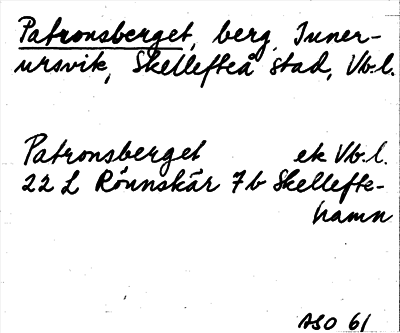 Patronsberget, berg, Inner-
ursvik, Skellefteå stad, Vb.l.
Patronsberget ek Vb.l.
22 L Rönnskär 7b Skellefte-
hamn
ASO 61